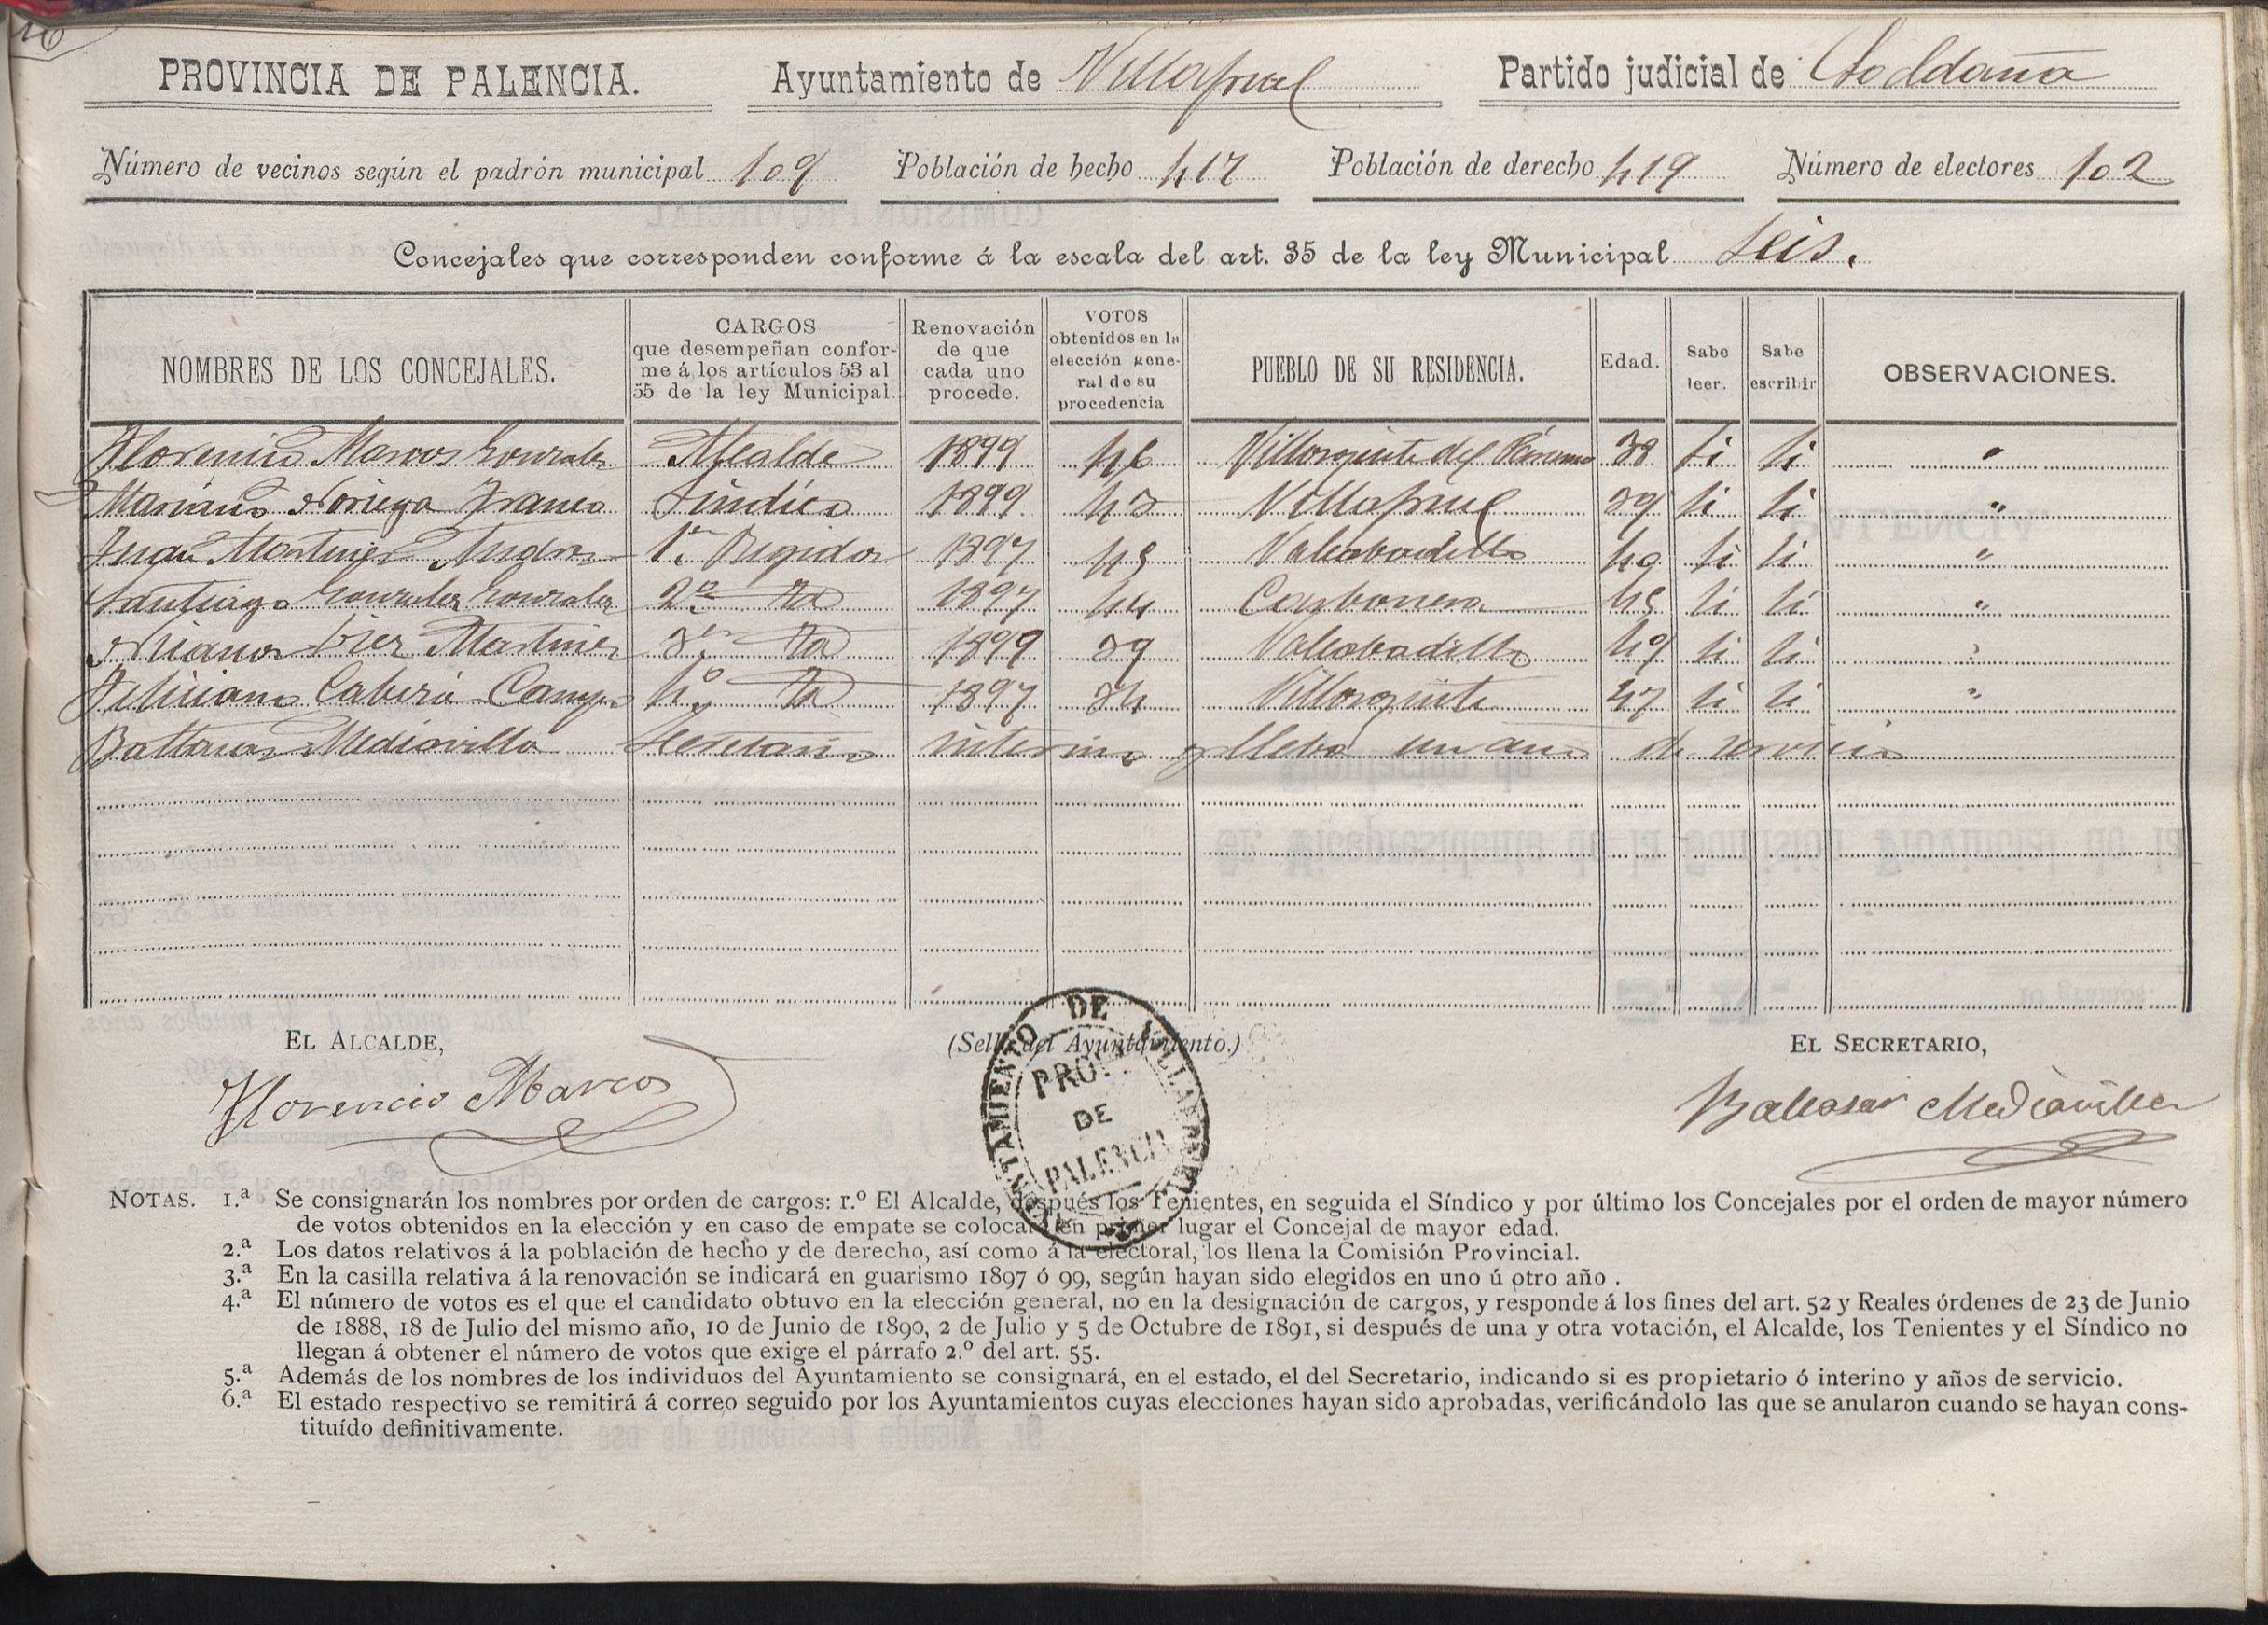 PROVINCIA DE PALENCIA. Ayuntamiento de Villaprual Partido judicial de Saldaña
Número de vecinos según el padrón municipal 109 Población de hecho 417 Población de derecho 419 Número de electores 102
Concejales que corresponden conforme á la escala del art. 35 de la ley Municipal Seis.
NOMBRES DE LOS CONCEJALES. CARGOS que desempeñan conforme á los artículos 53 al 55 de la ley Municipal. Renovación de que cada uno procede. VOTOS obtenidos en la elección general de su procedencia PUEBLO DE SU RESIDENCIA. Edad. Sabe leer. Sabe escribir OBSERVACIONES.
Florencio Marcos Gonzalez Alcalde 1899 46 Villorquite del Páramo 38 si si "
Mariano Noriega Franco Síndico 1899 43 Villapruel 39 si si "
Juan Martinez Andres 1.er Regidor 1897 45 Valcabadillo si si "
Santiago Gonzalez Gonzalez 2º id 1897 44 Carbonera 45 si si "
Diez Martinez 3.er id 1899 39 Valcabadillo 49 si si "
Feliciano Caminero 4º id 1897 34 Villorquite 47 si si "
Baltasar Mediavilla Secretario interino y lleva un año de servicio
EL ALCALDE, (Sello del Ayuntamiento.) EL SECRETARIO,
Florencio Marcos Baltasar Mediavilla
AYUNTAMIENTO DE VILLAPRUEL
PROV.ª DE PALENCIA
NOTAS. 1.ª Se consignarán los nombres por orden de cargos: 1.º El Alcalde, después los Tenientes, en seguida el Síndico y por último los Concejales por el orden de mayor número
de votos obtenidos en la elección y en caso de empate se colocará en primer lugar el Concejal de mayor edad.
2.ª Los datos relativos á la población de hecho y de derecho, así como á la electoral, los llena la Comisión Provincial.
3.ª En la casilla relativa á la renovación se indicará en guarismo 1897 ó 99, según hayan sido elegidos en uno ú otro año .
4.ª El número de votos es el que el candidato obtuvo en la elección general, no en la designación de cargos, y responde á los fines del art. 52 y Reales órdenes de 23 de Junio
de 1888, 18 de Julio del mismo año, 10 de Junio de 1890, 2 de Julio y 5 de Octubre de 1891, si después de una y otra votación, el Alcalde, los Tenientes y el Síndico no
llegan á obtener el número de votos que exige el párrafo 2.º del art. 55.
5.ª Además de los nombres de los individuos del Ayuntamiento se consignará, en el estado, el del Secretario, indicando si es propietario ó interino y años de servicio.
6.ª El estado respectivo se remitirá á correo seguido por los Ayuntamientos cuyas elecciones hayan sido aprobadas, verificándolo las que se anularon cuando se hayan cons-
tituído definitivamente.